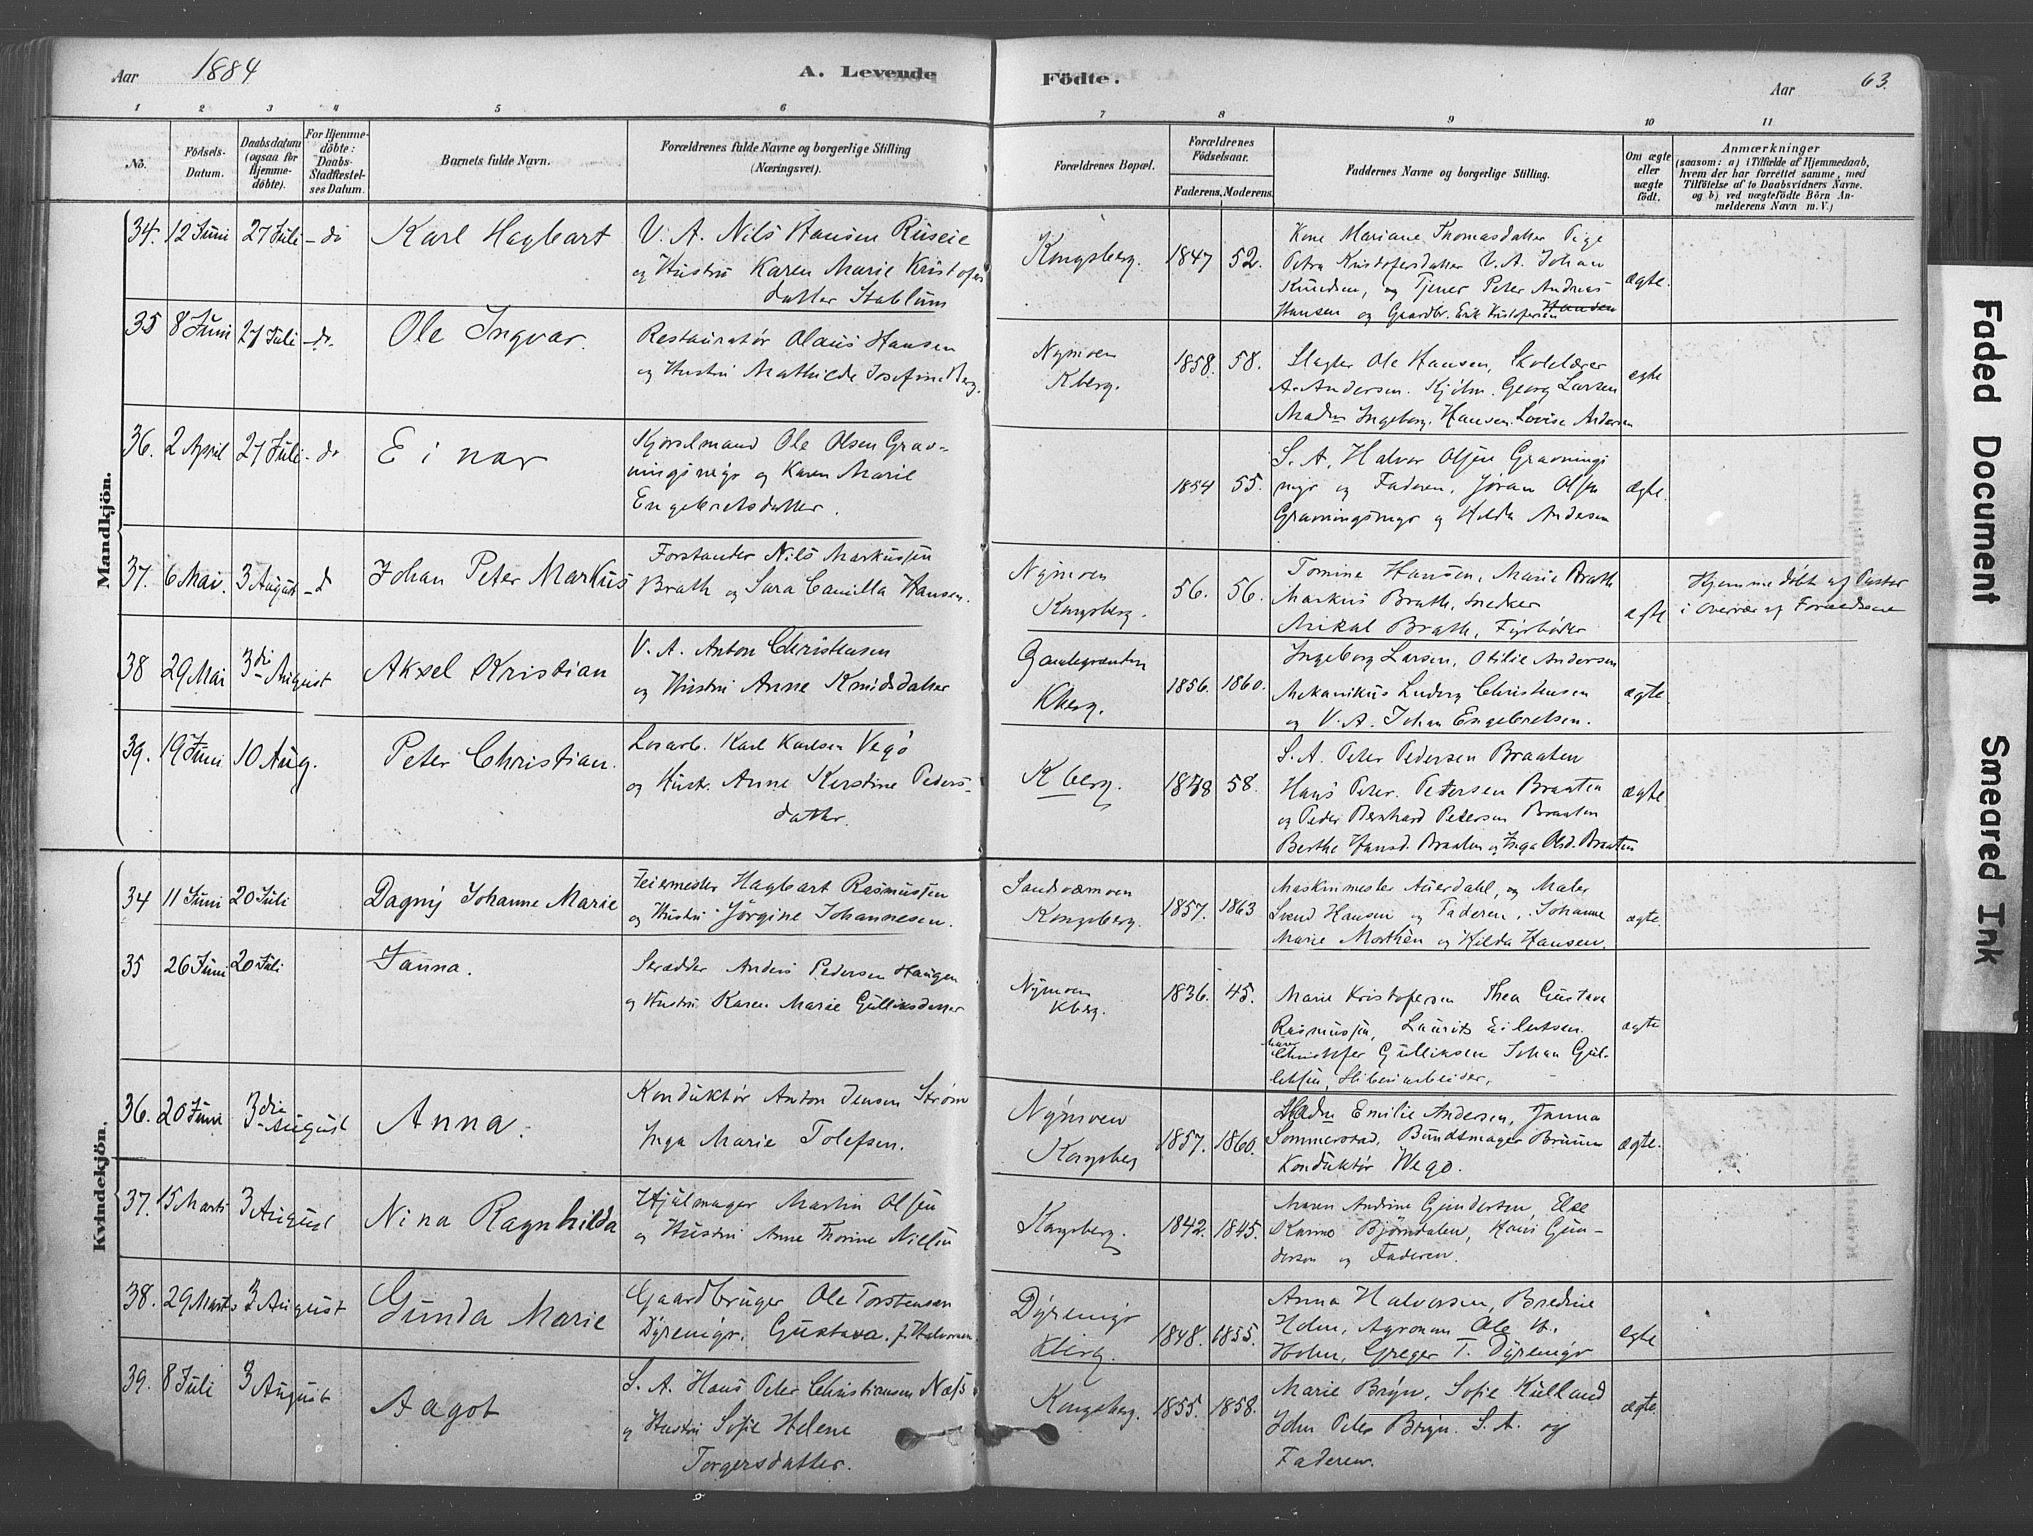 Aar 1884 A. Levende Födte. Aar 63.
1 2 3 4 5 6 7 8 9 10 11
No. Födsels-Datum. Daabsdatum (ogsaa for Hjemme-döbte). For Hjemme-döbte: Daabs-Stadfæstel-ses Datum. Barnets fulde Navn. Forældrenes fulde Navne og borgerlige Stilling (Næringsvei). Forældrenes Bopæl. Forældrenes Födselsaar. Faderens. Moderens. Faddernes Navne og borgerlige Stilling. Om ægte eller uægte födt. Anmærkninger (saasom: a) i Tilfælde af Hjemmedaab, hvem der har forrettet samme, med Tilföielse af to Daabsvidners Navne. og b) ved uægtefödte Börn An-melderens Navn m. V.)
Mandkjön.
34. 12 Juni 27 Juli - do Karl Hagbart
V. A. Nils Hansen Ruseie
og Hustru Karen Marie Kristofers
datter Stablum
Kongsberg. 1847 52.
Kone Mariane Thomasdatter Pige
Petra Kristofersdatter V. A. Johan
Knudsen, og Tjener Peter Andreas
Hansen og Gaardbr. Erik Kristofersen
ægte.
35 8 Juni 27 Juli - do. Ole Ingvar.
Restauratør Olaus Hansen
og Hustru Mathilde Josefine Berg.
Nymoen
Kberg.
1858. 58.
Slagter Ole Hansen, Skolelærer
A. Andersen. Kjøbm. Georg Larsen
Madm Ingeborg Hansen. Lovise Andersen
egte
36. 2 April 27 Juli - do Einar
Kjørselmand Ole Olsen Grav-
ningsmyr og Karen Marie
Engebretsdatter.
1854 55.
S. A. Halvor Olsen Gravnings
myr og Faderen, Jøran Olsen
Gravningsmyr og Hilda Andersen
ægte.
37. 6 Mai. 3 August - d Johan Peter Markus
Forstander Nils Markussen
Brath og Sara Camilla Hansen.
Nymoen
Kongsberg.
56. 56.
Tomine Hansen, Marie Brath
Markus Brath, Snedker
Mikal Brath, Fyrbøder
egte
Hjemmedøbt af Pastor
i Overvær af Forældrene
38 29 Mai 3die August Aksel Kristian
V. A. Anton Christensen
og Hustru Anne Knudsdatter
Gamlegrænden
Kberg.
1856. 1860.
Ingeborg Larsen, Otilie Andersen
Mekanikus Ludvig Christensen
og V. A. Johan Engebretsen.
ægte.
39. 19 Juni 10 Aug. Peter Christian.
Løsarb. Karl Karlsen Vegò
og Hustr. Anne Kerstine Peders-
datter.
Kberg. 1848 58.
S. A. Peter Pedersen Braaten
Hans Peter Pedersen Braaten
og Peder Bernhard Petersen Braaten
Berthe Hansd. Braaten og Inga Olsd. Braaten
ægte.
Kvindekjön.
34 11 Juni 20 Juli Dagny Johanne Marie
Feiermester Hagbart Rasmussen
og Hustru Jørgine Johannesen.
Sandsværmoen
Kongsberg.
1857. 1863
Maskinmester Auerdahl, og Maler
Svend Hansen og Faderen. Johanne
Marie Morthén og Hilda Hansen.
ægte.
35 26 Juni 20 Juli Janna.
Skrædder Anders Pedersen Haugen
og Hustru Karen Marie Gulliksdatter
Nymoen
Kberg.
1836. 45.
Marie Kristofersen Thea Gustava
Rasmussen, Laurits Eilertsen.
Christofer Gulliksen Johan Gul-
liksen, Sliberiarbeider.
ægte
36. 20 Juni 3die August Anna.
Konduktør Anton Jensen Strøm
Inga Marie Tolefsen.
Nymoen
Kongsberg
1857. 1860.
Madm Emilie Andersen, Janna
Sommerstad, Bundtmager Bruun
Konduktør Wego.
ægte.
37. 15 Marts 3 August Nina Ragnhilda
Hjulmager Martin Olsen
og Hustru Anne Thorine Nilsen
Kongsberg. 1842. 1845.
Maren Andrine Gundersen, Else
Karine Bjørndalen, Hans Gun-
dersen og Faderen.
ægte.
38. 29 Marts 3 August Gunda Marie
Gaardbruger Ole Torstensen
Dyremyr. Gustava f. Halvorsen
Dyremyr
Kberg.
1848. 1855.
Anna Halvorsen, Bredine
Holm, Agronom Ole H.
Holm, Greger T. Dyremyr
egte
39. 8 Juli 3 August Aagot
S. A. Hans Peter Christiansen Næss
og Hustru Sofie Helene
Torgersdatter.
Kongsberg. 1855. 1858.
Marie Bryn, Sofie Kulland
John Peter Bryn. S. A. og
Faderen.
ægte.
Faded Document
Smeared Ink